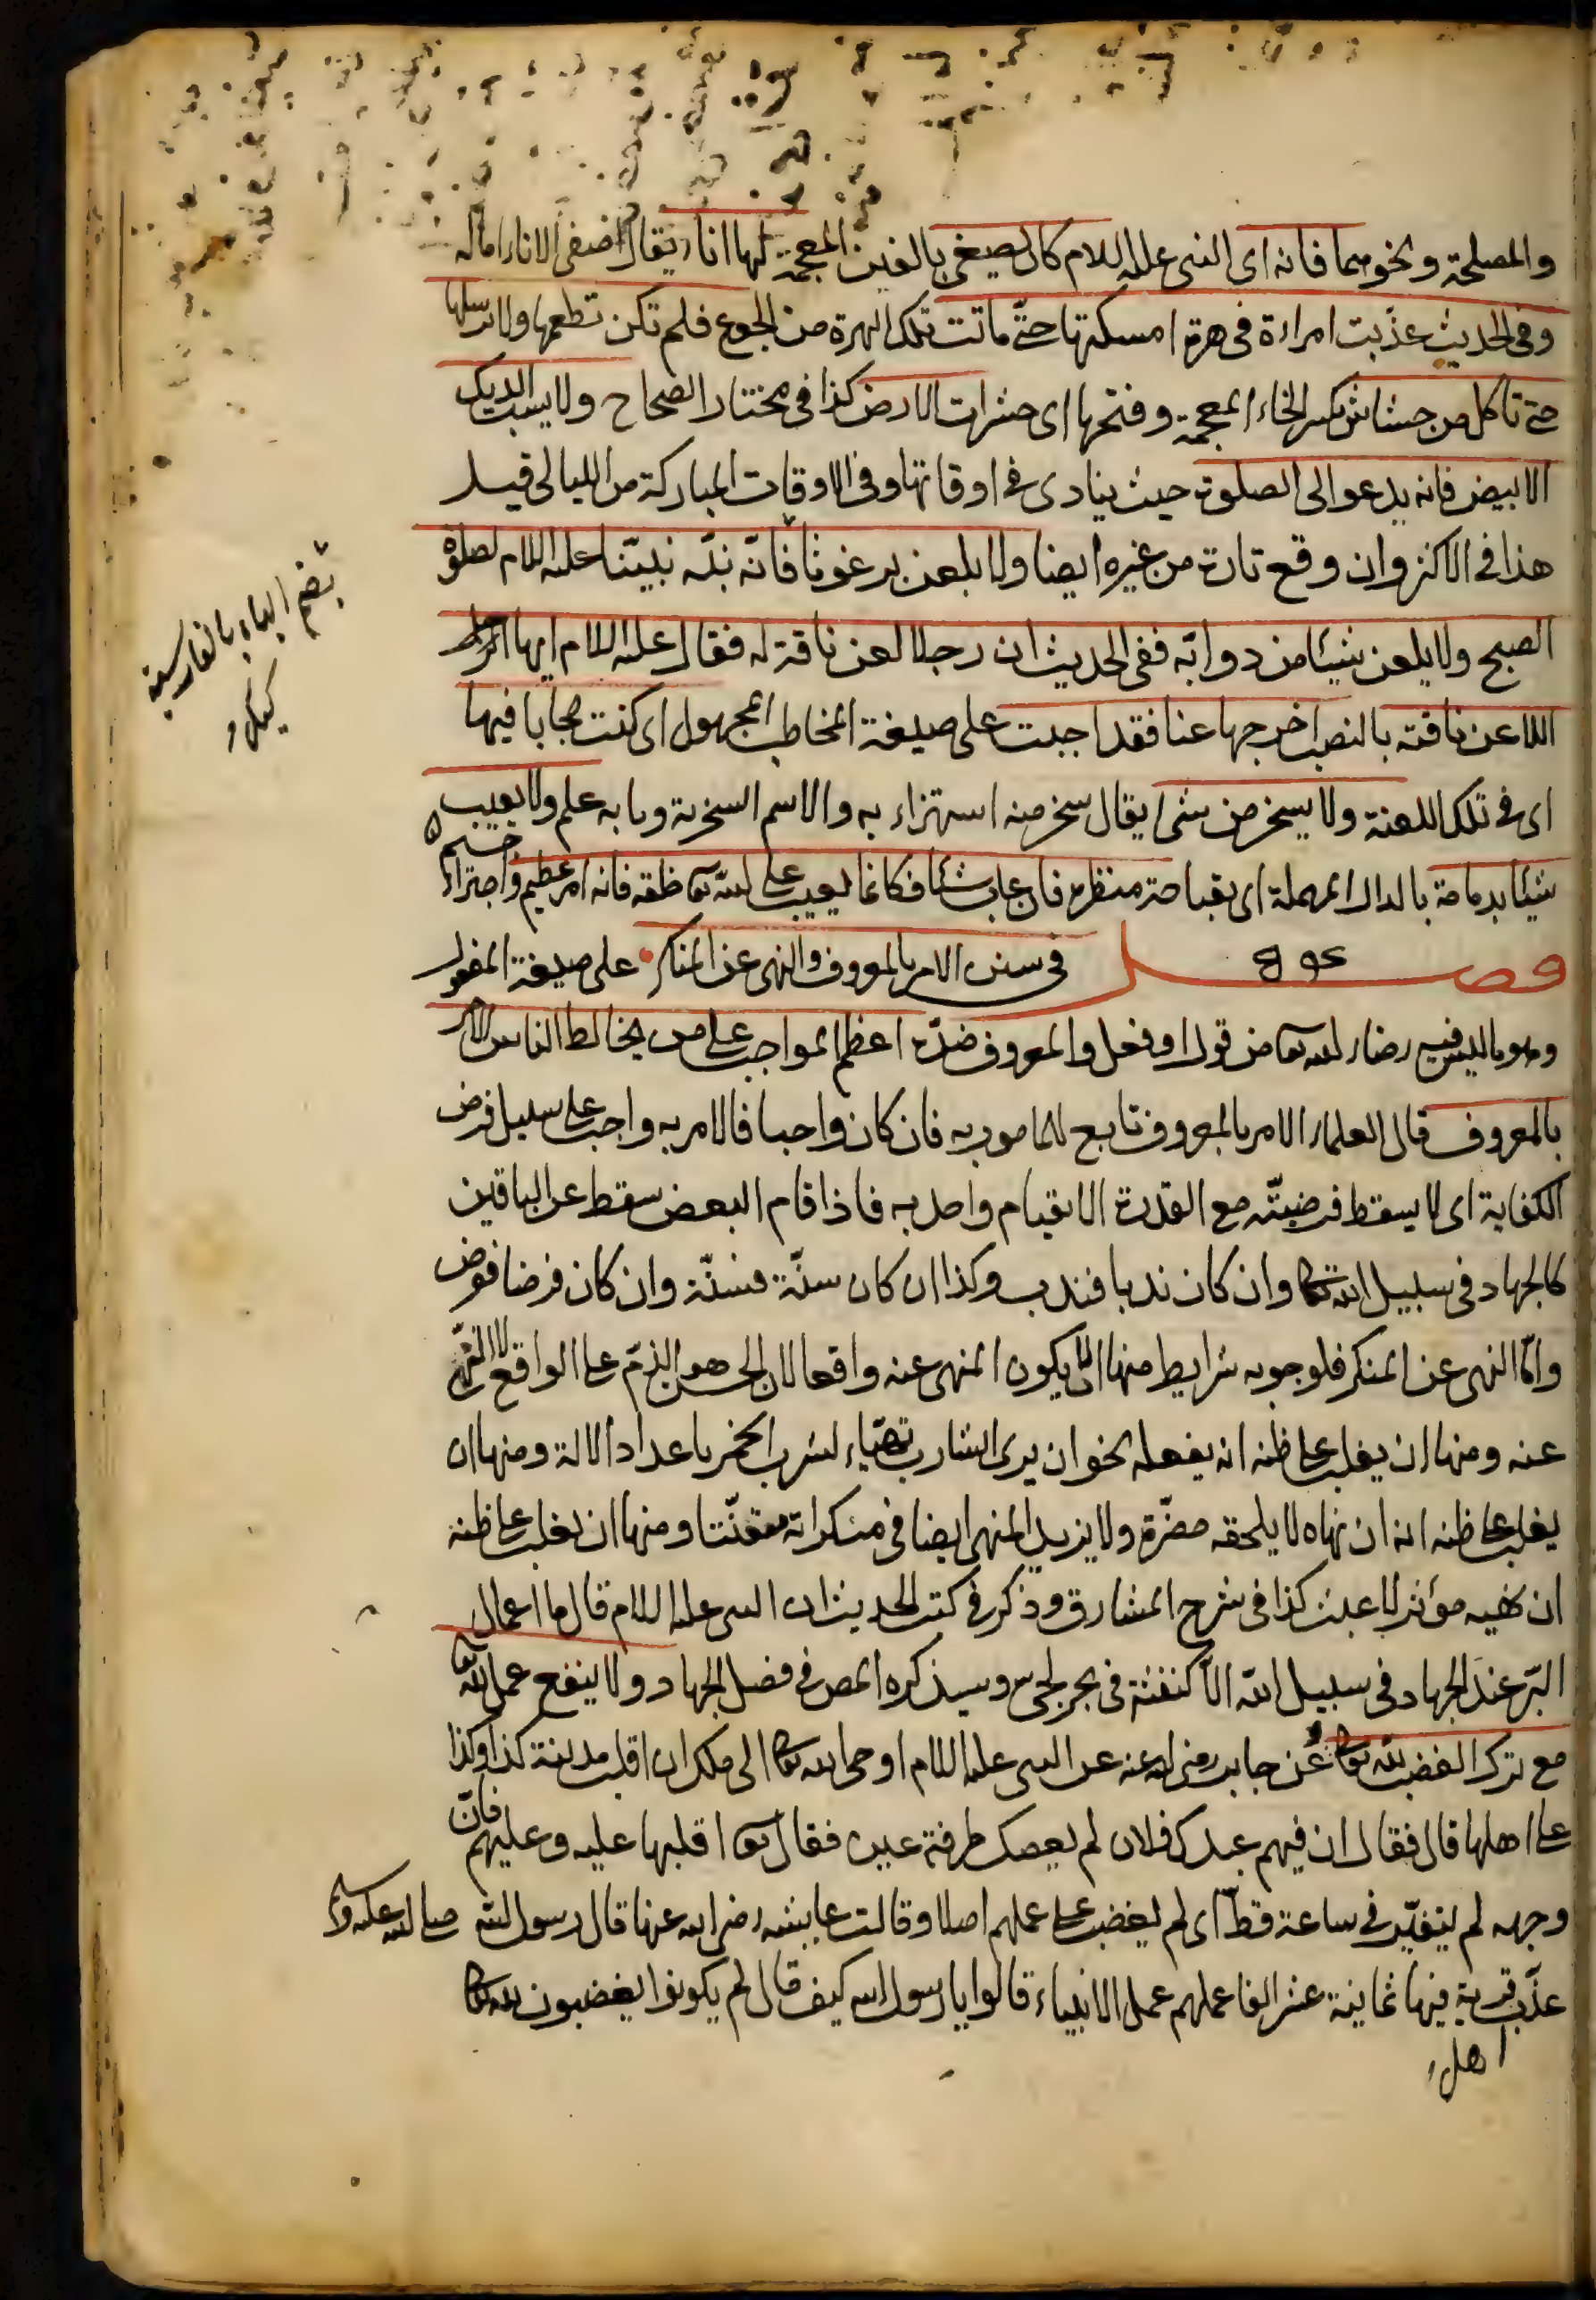 والمصلحة ونحوهما فانه اى النبى عليه السلام كان يصغى بالغين المعجمة لها اناء يقال اصغى الاناء اماله
وفى الحديث عذبت امراءة فى هرة امسكتها حتّى ماتت تلك الهرة من الجوع فلم تكن تطعمها ولا ترسلها
حتى تاكل من خشاش بكسر الخاء المعجمة وفتحها اى حشرات الارض كذا فى مختار الصحاح ولا يسب الديك
الابيض فانه يدعو الى الصلوة حيث ينادى فى اوقاتها وفى الاوقات المباركة من الليالى قيل
هذا فى الاكثر وان وقع تارة من غيره ايضا ولا يلعن برغوثا فانّه نبّه نبيّنا عليه السلام لصلوة
الصبح ولا يلعن شيئا من دوابّه ففى الحديث ان رجلا لعن ناقة له فقال عليه السلام ايها الرجل
اللاعن ناقته بالنصب اخرجها عنا فقد اجبت على صيغة المخاطب المجهول اى كنت مجابا فيها
اى فى تلك اللعنة ولا يسخر من شئ يقال سخر منه استهزاء به والاسم السخرية وبابه علم ولا يعيب
شيئا بدمامة بالدال المهملة اى بقباحة منظره فان عاب شيئا فكانما يعيب على الله تعالى خلقه فانه امر عظيم واجتراء
جسيم
فصل فى سنن الامر بالمعروف والنهى عن المنكر على صيغة المفعول
وهو ما ليس فيه رضاء الله تعالى من قول او فعل والمعروف ضدّه اعظم المواجب على من يخالط الناس الامر
بالمعروف قال العلماء الامر بالمعروف تابع للمامور به فان كان واجبا فالامر به واجب على سبيل فرض
الكفاية اى لا يسقط فرضيّته مع القدرة الا بقيام واحد به فاذا قام البعض سقط عن الباقين
كالجهاد فى سبيل الله تعالى وان كان ندبا فندب وكذا ان كان سنّة فسنّة وان كان فرضا ففرض
وامّا النهى عن المنكر فلوجوبه شرايط منها ان لا يكون المنهى عنه واقعا لان الحسن هو الذم على الواقع لا النهى
عنه ومنها ان يغلب على ظنه انه يفعله نحو ان يرى الشارب تهيّاء لشرب الخمر باعداد الالة ومنها ان
يغلب على ظنه انه ان نهاه لا يلحقه مضرّة ولا يزيد المنهى ايضا فى منكراته متعنّتا ومنها ان يغلب على ظنه
ان نهيه مؤثر لا عبث كذا فى شرح المشارق وذكر فى كتب الحديث ان النبى عليه السلام قال ما اعمال
البّر عند الجهاد فى سبيل الله الاّ كنفثة فى بحر لجى وسيذكره المص فى فضل الجهاد ولا ينفع عمل لله تعالى
مع ترك الغضب لله تعالى عن جابر رضى الله عنه عن النبى عليه السلام اوحى الله تعالى الى ملك ان اقلب مدينة كذا وكذا
على اهلها قال فقال ان فيهم عبدك فلان لم يعصك طرفة عين فقال تعالى اقلبها عليه وعليهم فانّ
وجهه لم يتغيّر فى ساعة قطّ اى لم يغضب على عملهم اصلا وقالت عايشه رضى الله عنها قال رسول الله صلى الله عليه وسلم
عذّب قرية فيها ثمانية عشر الفا عملهم عمل الانبياء قالوا يا رسول الله كيف قال لم يكونوا يغضبون لله تعالى
اهل
بضم الباء بالفارسية
كيك